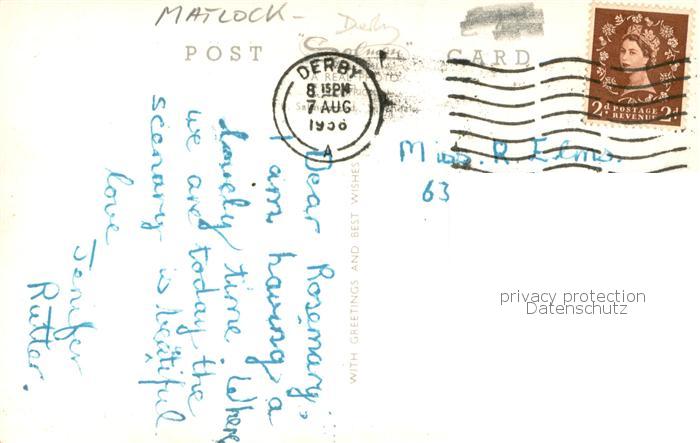 MATLOCK -
Derby
POST "Salmon" CARD
DERBY
8 15PM
7 AUG
1958
A
2d POSTAGE 2d
REVENUE
Dear Rosemary,
I am having a
lovely time. Where
we are today the
scenary is beatiful
love
Jenifer
Rutter.
WITH GREETINGS AND BEST WISHES
Miss. R Elms.
63
privacy protection
Datenschutz